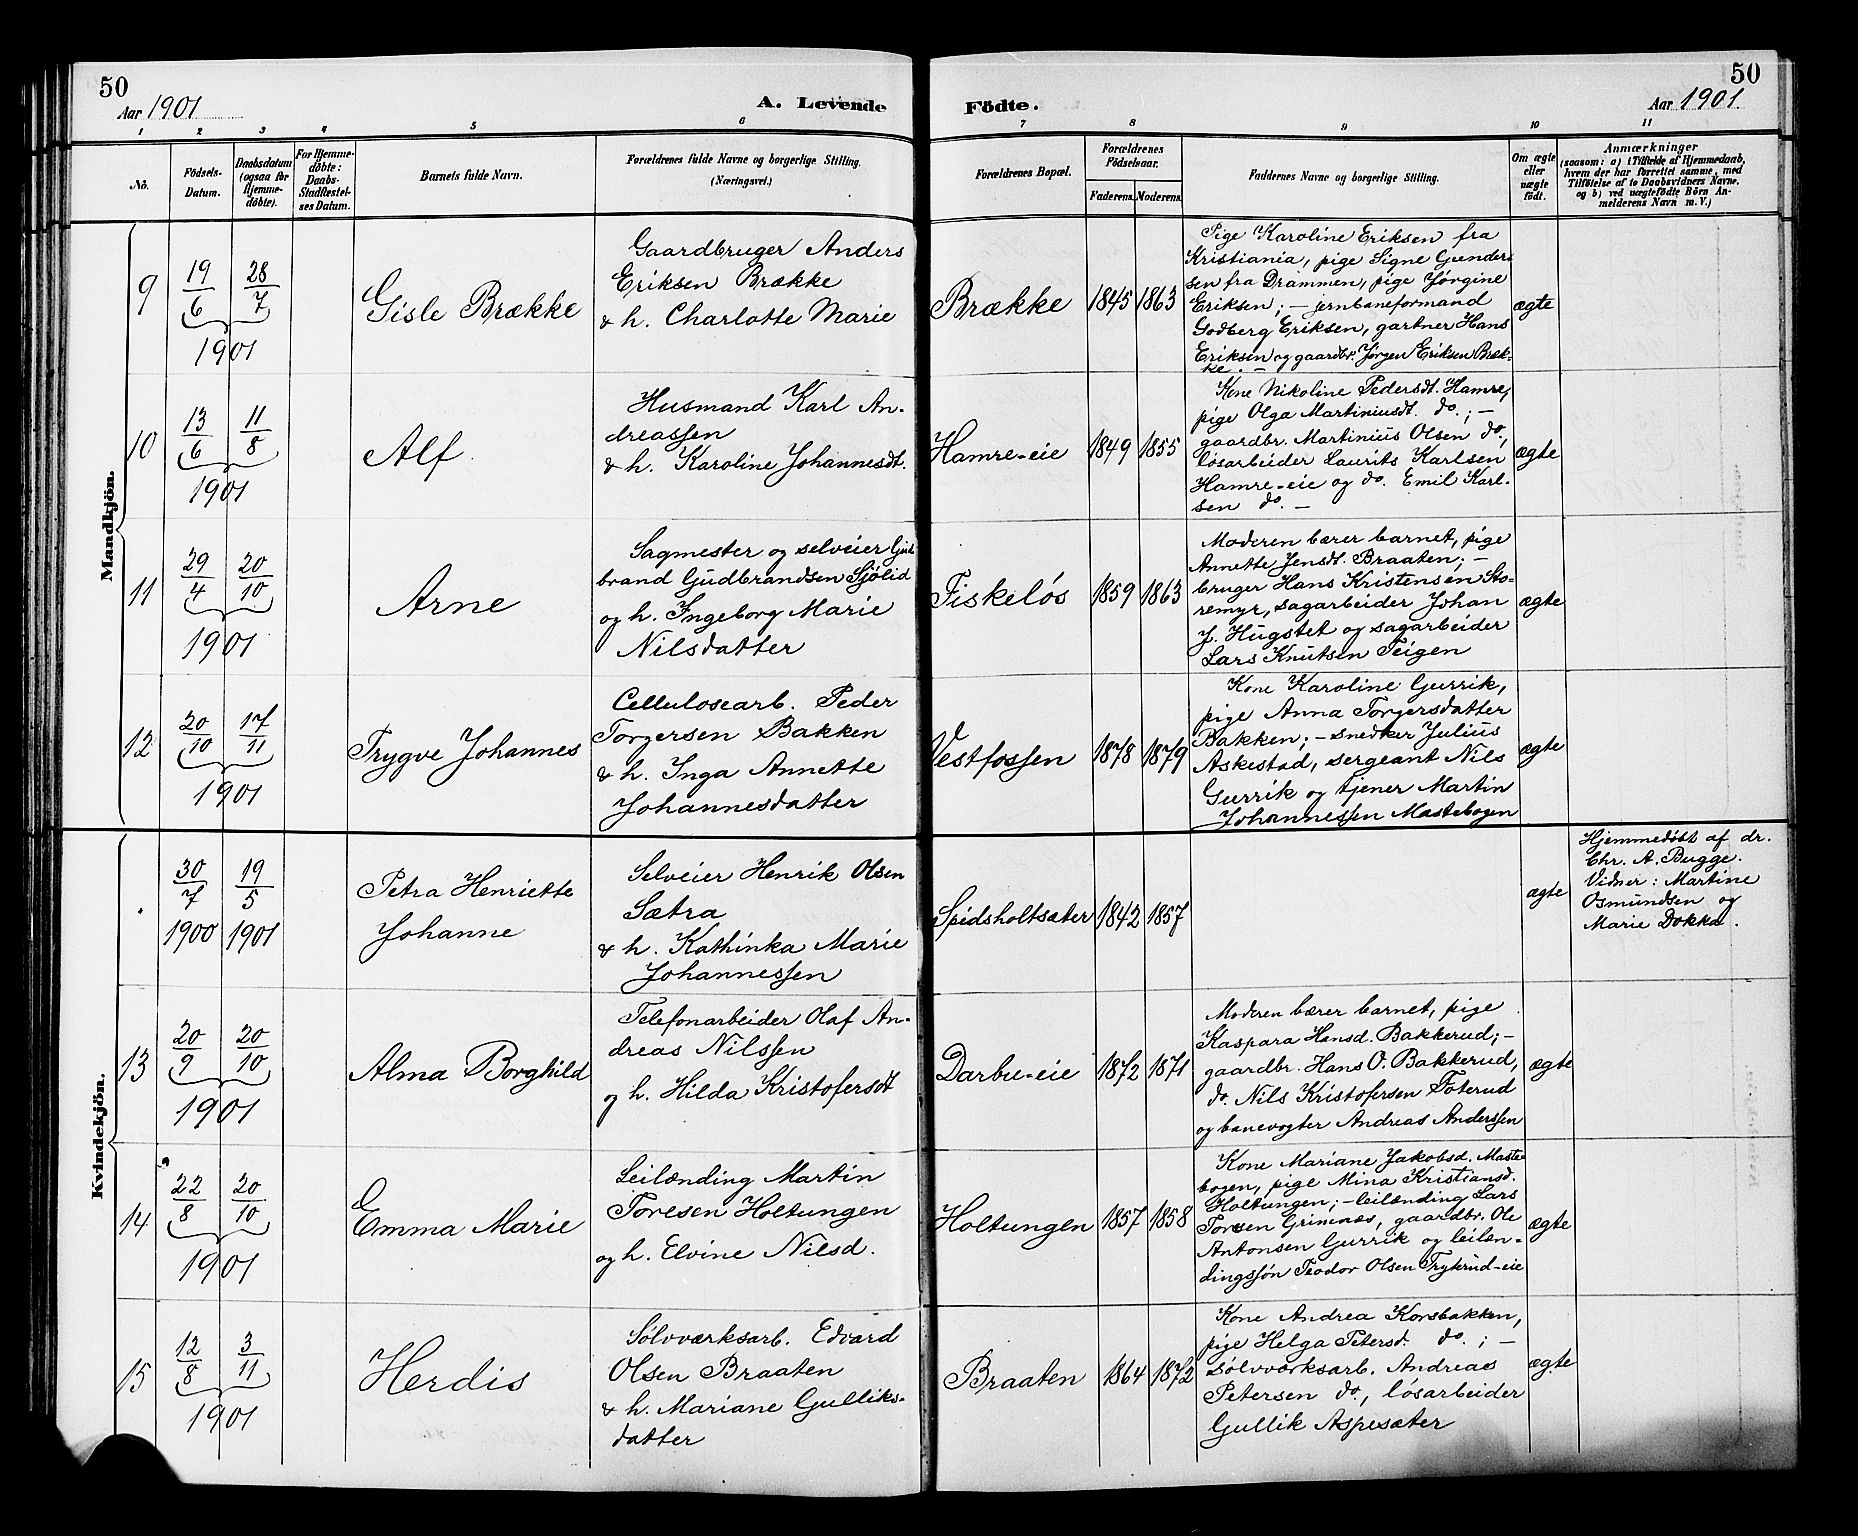 50
Aar 1901
A. Levende
Födte.
50
Aar 1901.
1 2 3 4 5 6 7 8 9 10 11
No.
Födsels-
Datum.
Daabsdatum
(ogsaa for
Hjemme-
döbte).
For Hjemme-
döbte:
Daabs-
Stadfestel-
ses Datum.
Barnets fulde Navn.
Forældrenes fulde Navne og borgerlige Stilling.
(Næringsvei.)
Forældrenes Bopæl.
Forældrenes
Födselsaar.
Faderens. Moderens.
Faddernes Navne og borgerlige Stilling.
Om ægte
eller
uægte
födt.
Anmærkninger
(saasom: a) i Tilfælde af Hjemmedaab,
hvem der har forrettet samme, med
Tilföielse af to Daabsvidners Navne,
og b) ved uægtefödte Börn An-
melderens Navn m. V.)
Mandkjön.
9
19/6 28/7
1901
Gisle Brække
Gaardbruger Anders
Eriksen Brække
& h. Charlotte Marie
Brække
1845 1863
Pige Karoline Eriksen fra
Kristiania, pige Signe Gunder-
sen fra Drammen, pige Jørgine
Eriksen; – jernbaneformand
Godberg Eriksen, gartner Hans
Eriksen og gaardbr. Jørgen Eriksen Bræk-
ke. –
ægte
10
13/6 11/8
1901
Alf
Husmand Karl An-
dreassen
& h. Karoline Johannesdt.
Hamre-eie
1849 1855
Kone Nikoline Pedersdt. Hamre,
pige Olga Martiniusdt. do.; –
gaardbr. Martinius Olsen do,
løsarbeider Laurits Karlsen
Hamre-eie og do. Emil Karl-
sen do. –
ægte
11
29/4 20/10
1901
Arne
Sagmester og selveier Gud-
brand Gudbrandsen Sjølid
og h. Ingeborg Marie
Nilsdatter
Fiskeløs
1859 1863
Moderen bærer barnet, pige
Annette Jensdt. Braaten; –
bruger Hans Kristensen Sto-
remyr, sagarbeider Johan
J. Hugstet og sagarbeider
Lars Knutsen Teigen
ægte
12
20/10 17/11
1901
Trygve Johannes
Cellulosearb. Peder
Torgersen Bakken
& h. Inga Annette
Johannesdatter
Vestfossen
1878 1879
Kone Karoline Gurrik,
pige Anna Torgersdatter
Bakken; – snedker Julius
Askestad, sergeant Nils
Gurrik og tjener Martin
Johannessen Mastebogen
ægte
Kvindekjön.
30/7 19/5
1900 1901
Petra Henriette
Johanne
Selveier Henrik Olsen
Sætra
& h. Kathinka Marie
Johannessen
Spidsholtsæter
1842 1857
ægte
Hjemmedøbt af dr.
Chr. A. Bugge.
Vidner: Martine
Osmundsen og
Marie Dokka.
13
20/9 20/10
1901
Alma Borghild
Telefonarbeider Olaf An-
dreas Nilssen
og h. Hilda Kristofersdt
Darbu-eie
1872 1871
Moderen bærer barnet, pige
Kaspara Hansd. Bakkerud; –
gaardbr. Hans O. Bakkerud,
do. Nils Kristofersen Foterud
og banevogter Andreas Anderssen
ægte
14
22/8 20/10
1901
Emma Marie
Leilænding Martin
Toresen Holtungen
og h. Elvine Nilsd.
Holtungen
1857 1858
Kone Mariane Jakobsd. Maste-
bogen, pige Mina Kristiansd.
Holtungen; – leilænding Lars
Toresen Grimnæs, gaardbr. Ole
Antonsen Gurrik og leilæn-
dingssøn Teodor Olsen Trykrud-eie
ægte
15
12/8 3/11
1901
Herdis
Sølvværksarb. Edvard
Olsen Braaten
& h. Mariane Gulliks-
datter
Braaten
1864 1872
Kone Andrea Korsbakken,
pige Helga Petersd. do.; –
sølvværksarb. Andreas
Petersen do., løsarbeider
Gullik Aspesæter
ægte